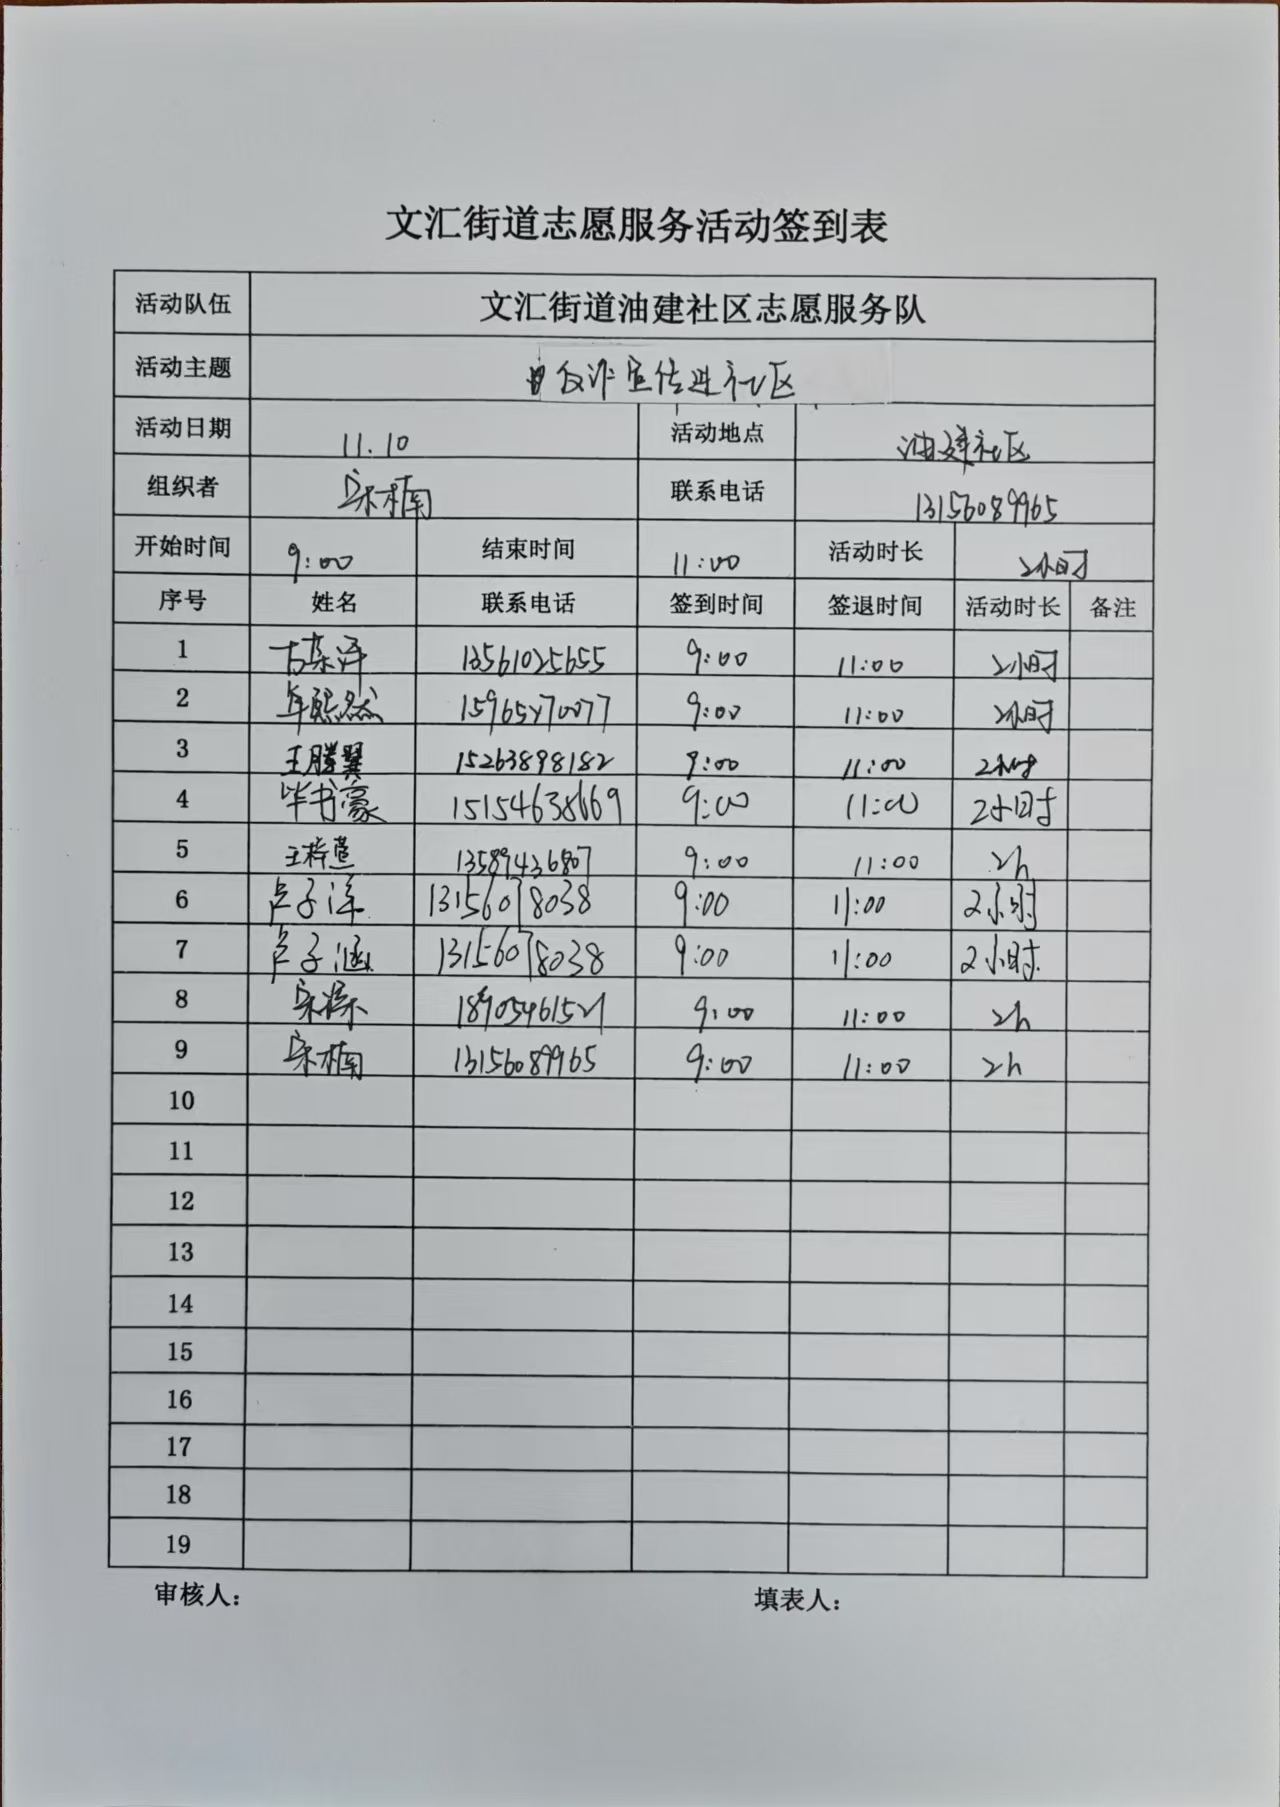 文汇街道志愿服务活动签到表
活动队伍 文汇街道油建社区志愿服务队
活动主题 反诈宣传进社区
活动日期 11.10 活动地点 油建社区
组织者 宋楠 联系电话 13156089965
开始时间 9:00 结束时间 11:00 活动时长 2小时
序号 姓名 联系电话 签到时间 签退时间 活动时长 备注
1 13561025655 9:00 11:00 2小时
2 年熙然 15965270077 9:00 11:00 2小时
3 王腾翼 15263898182 9:00 11:00 2小时
4 毕书豪 15154638669 9:00 11:00 2小时
5 王梓萱 13589436807 9:00 11:00 2h
6 卢子洋 13156078038 9:00 11:00 2小时
7 卢子涵 13156078038 9:00 11:00 2小时
8 18905461521 9:00 11:00 2h
9 宋楠 13156089965 9:00 11:00 2h
10
11
12
13
14
15
16
17
18
19
审核人： 填表人：